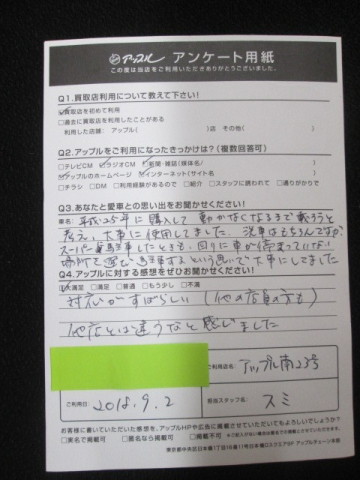 アップル アンケート用紙
この度は当店をご利用いただきありがとうございました。
Q1.買取店利用について教えて下さい!
□買取店を初めて利用
□過去に買取店を利用したことがある
利用した店舗： アップル( )店 その他( )
Q2.アップルをご利用になったきっかけは?（複数回答可）
□テレビCM □ラジオCM □新聞・雑誌(媒体名 )
□アップルのホームページ □インターネット(サイト名 )
□チラシ □DM □利用経験があるので □紹介 □スタッフに誘われて □通りがかりで
Q3.あなたと愛車との思い出をお聞かせください。
車名： 平成25年に購入して動かなくなるまで載ろうと
考え、大事に使用してました。洗車はもちろんですが、
スーパー等駐車したときも、回りに車が停まっていない
場所を選び駐車するという思いで大事にしてました
Q4.アップルに対する感想をぜひお聞かせください！
□大満足 □満足 □普通 □もう少し □不満
対応がすばらしい（他の店員の方も）
他店とは違うなと感じました
ご利用店名： アップル南23号
ご利用日： 2018.9.2
担当スタッフ名： スミ
お客様に書いていただいた感想を、アップルHPや広告に掲載させていただいてもよろしいでしょうか?
□実名で掲載可 □匿名なら掲載可 □掲載不可